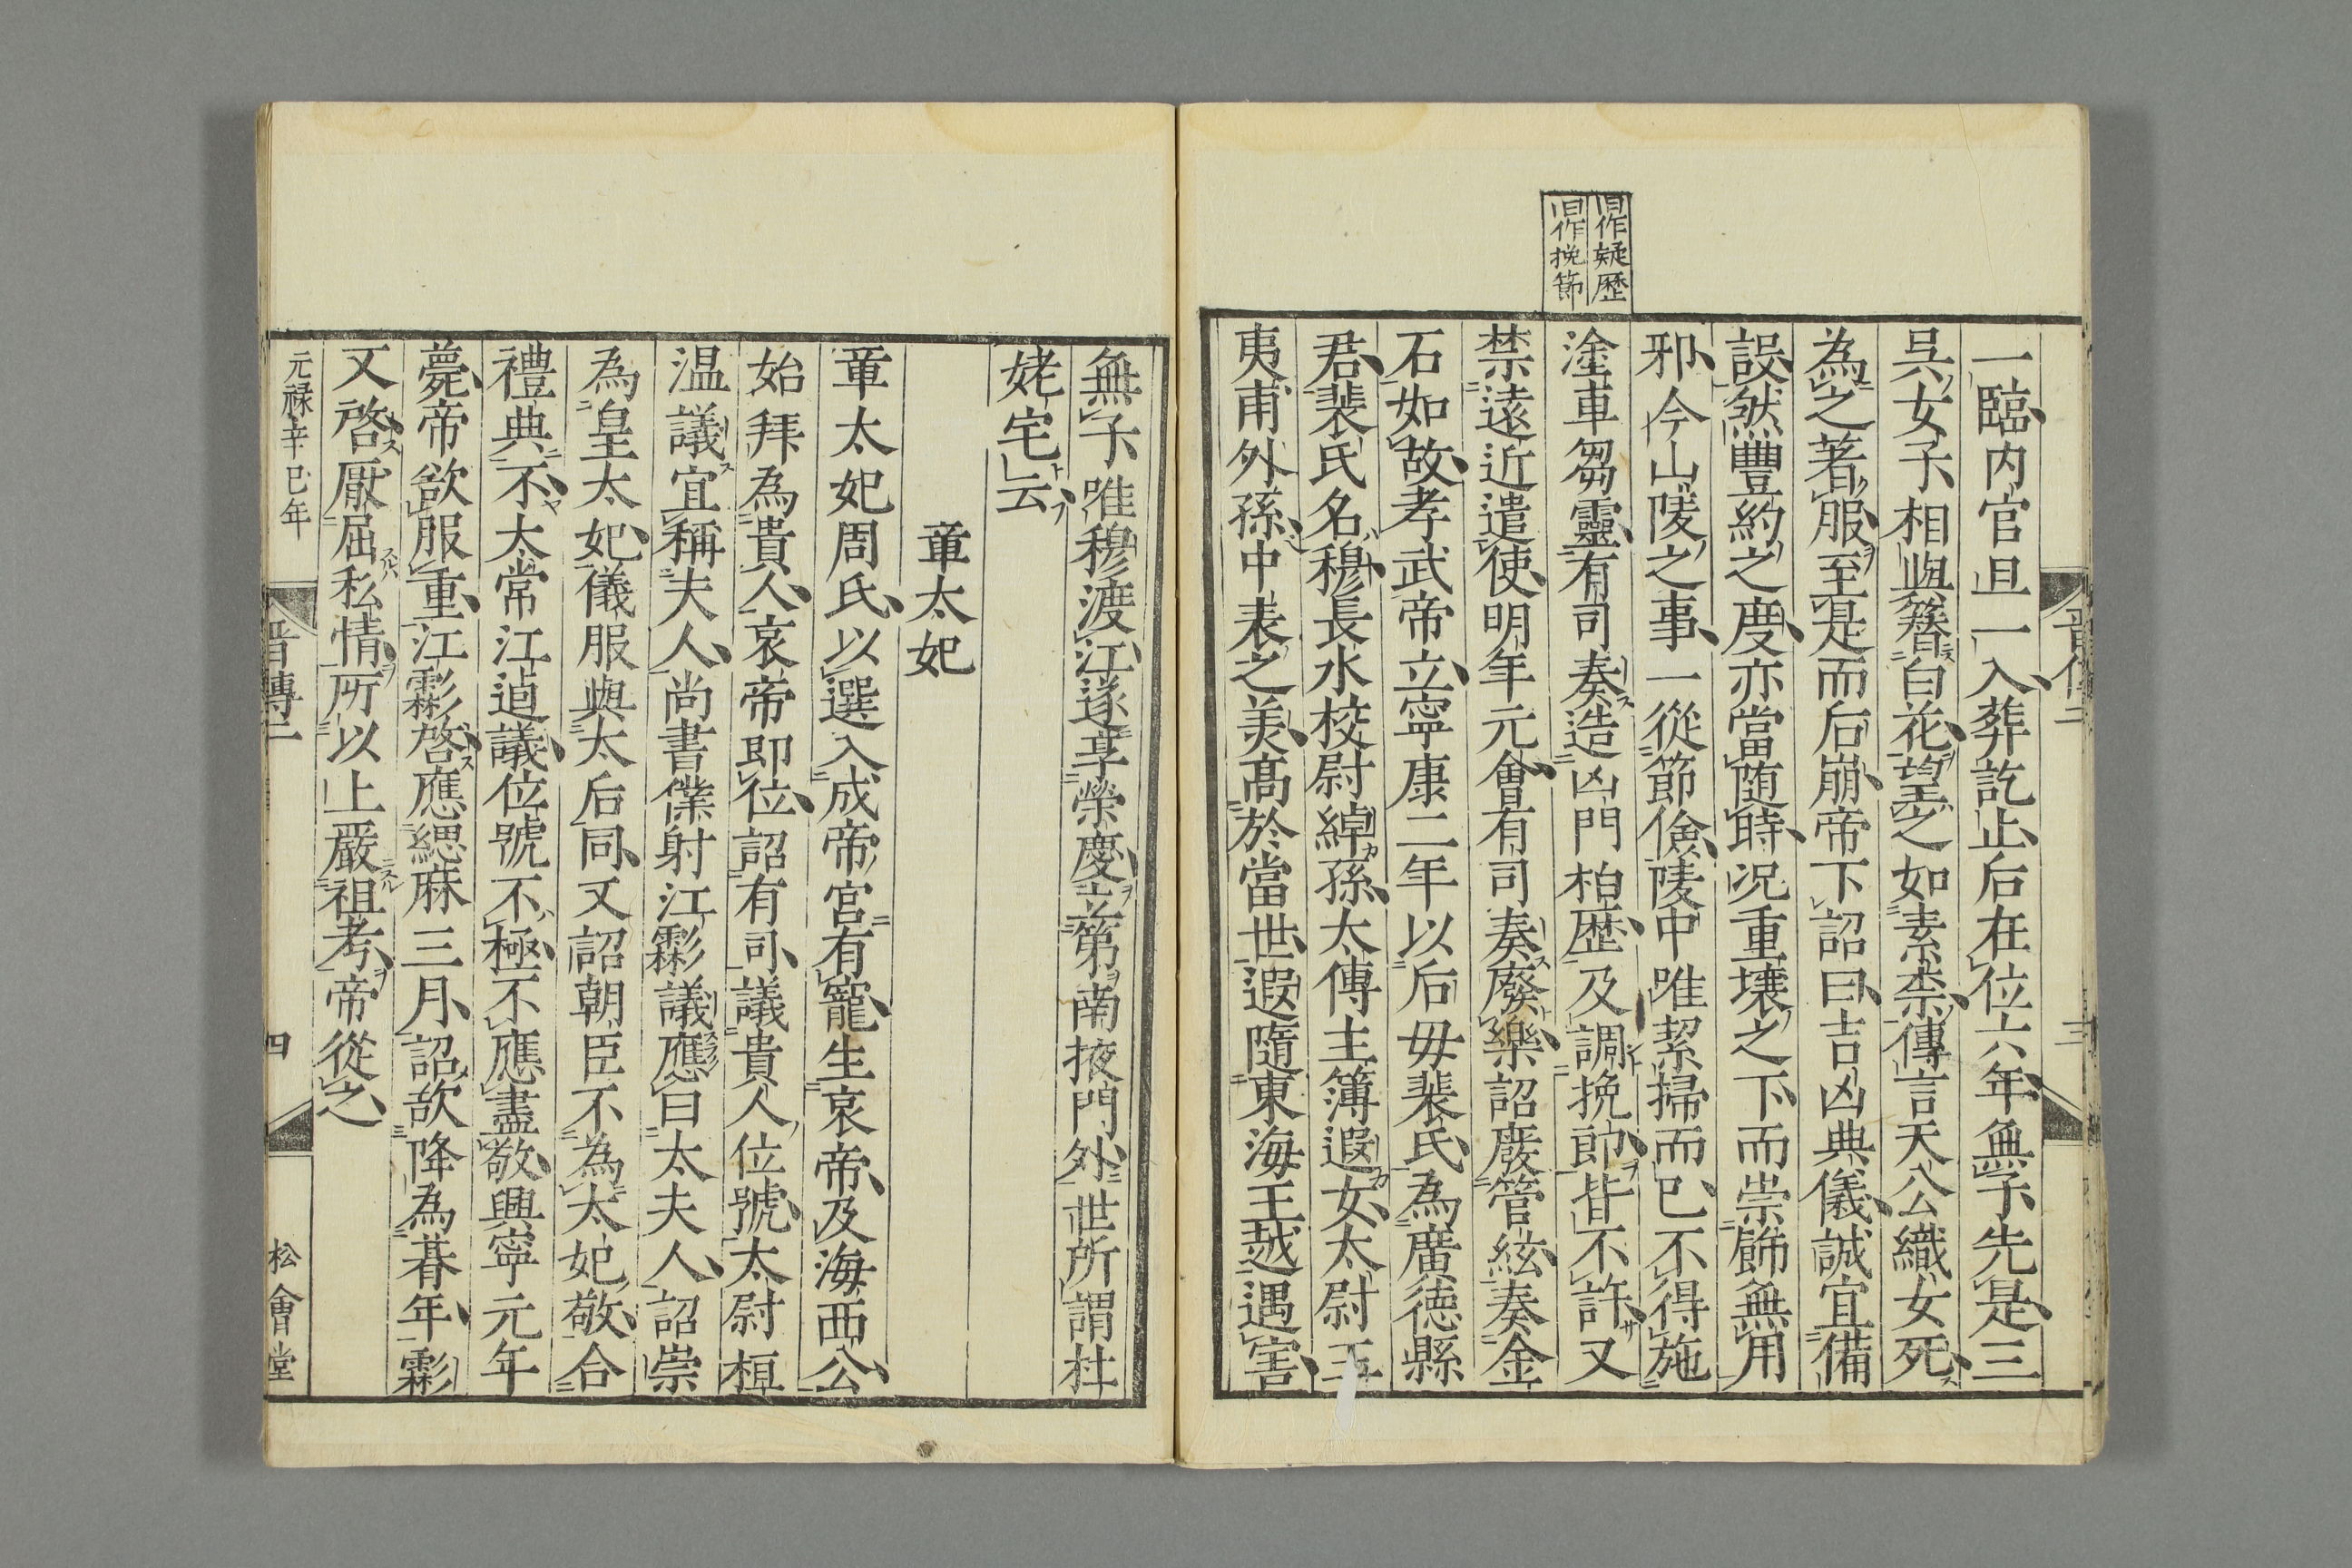 旧作疑歴
旧作挽節
一臨内官旦一入葬訖止后在位六年無子先是三
呉女子相與簪白花望之如素柰傳言天公織女死
為之著服至是而后崩帝下詔曰吉凶典儀誠宜備
設然豐約之慶亦當随時况重壤之下而崇飾無用
邪今山陵之事一從節儉陵中唯絜掃而已不得施
塗車芻靈有司奏造凶門柏歴及調挽節皆不許又
禁遠近遣使明年元會有司奏廢樂詔廢管絃奏金
石如故孝武帝立寧康二年以后母裴氏為廣徳縣
君裴氏名穆長水校尉綽孫太傅主簿遐女太尉王
夷甫外孫中表之美髙於當世遐隨東海王越遇害
無子唯穆渡江遂享榮慶立第南掖門外世所謂杜
姥宅云
章太妃
章太妃周氏以選入成帝宮有寵生哀帝及海西公
始拜為貴人哀帝即位詔有司議貴人位號太尉桓
温議宜稱夫人尚書僕射江虨議應曰太夫人詔崇
為皇太妃儀服與太后同又詔朝臣不為太妃敬合
禮典不太常江逌議位號不極不應盡敬興寧元年
薨帝欲服重江虨啓應緦麻三月詔欲降為朞年虨
又啓厭屈私情所以上嚴祖考帝從之
元禄辛巳年
晋傳二
四
松會堂